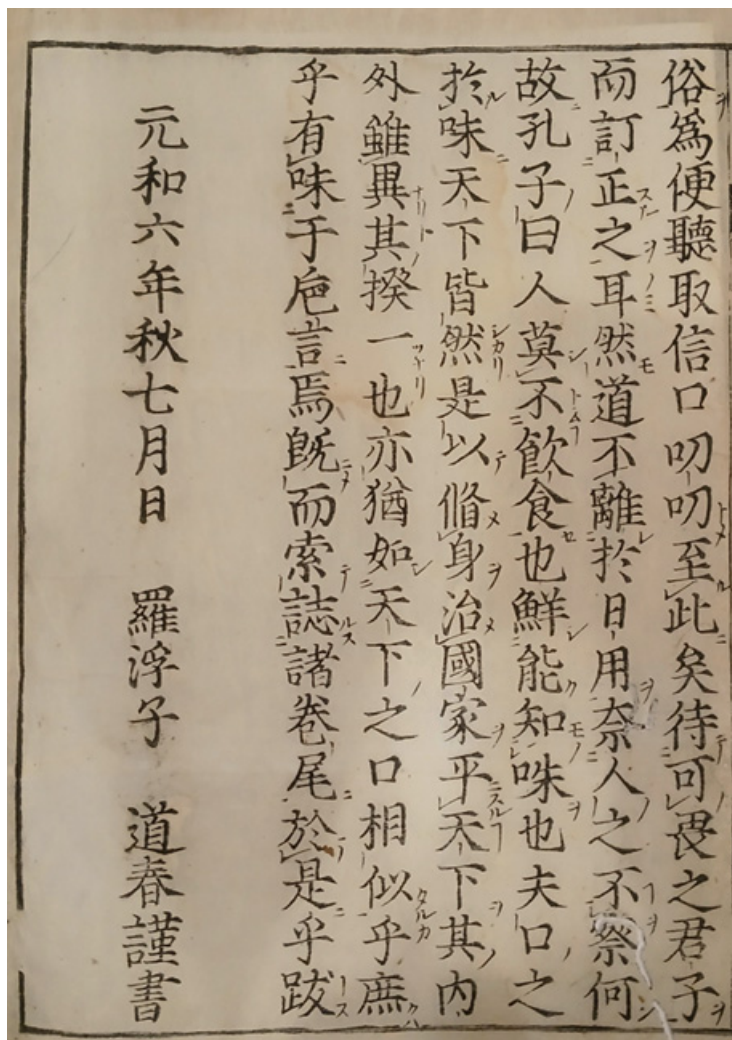 俗爲便聽取信口叨叨至此矣待可畏之君子
而訂正之耳然道不離扵日用奈人之不察何
故孔子曰人莫不飲食也鮮能知味也夫口之
扵味天下皆然是以脩身治國家平天下其内
外雖異其揆一也亦猶如天下之口相似乎庶
乎有味于巵言焉既而索誌諸卷尾於是乎跋
元和六年秋七月日　羅浮子　道春謹書